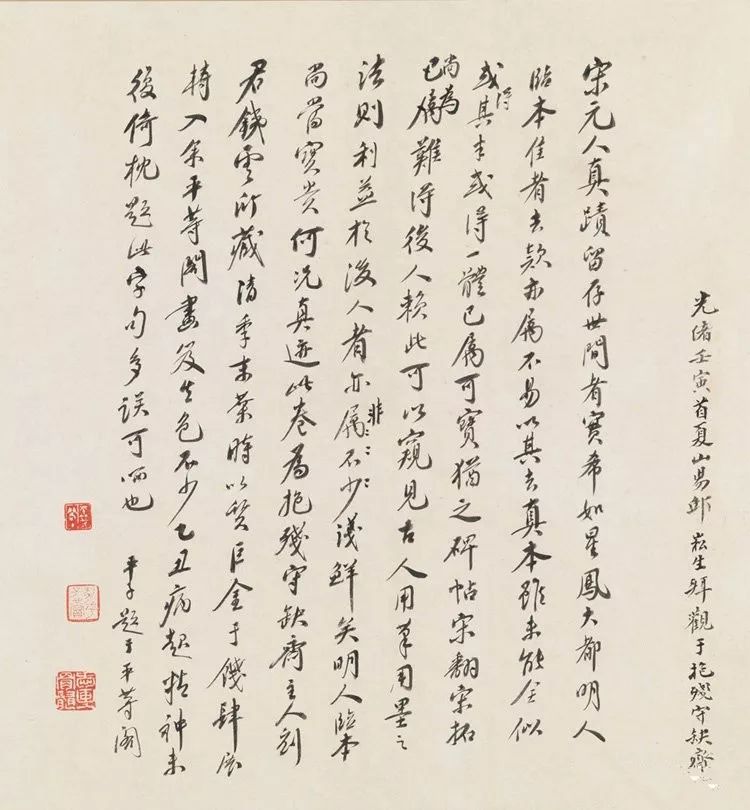 光緒壬寅首夏山昜邱崧生拜觀于抱殘守缺齋
宋元人真蹟留存世間者實希如星鳳大都明人
臨本佳者去款亦屬不易以其去真本雖未能全似
或得其半或得一體已屬可寶猶之碑帖宋翻宋拓
尚為已屬難得後人賴此可以窺見古人用筆用墨之
法則利益於後人者亦屬非不少淺鮮矣明人臨本
尚當寶貴何況真迹此卷為抱殘守缺齋主人劉
君鐵雲所藏清季末葉時以質巨金于餞肆展
轉入余平等閣畫笈生色不少乙丑病起精神未
復倚枕題此字句多誤可哂也
平子題于平等閣